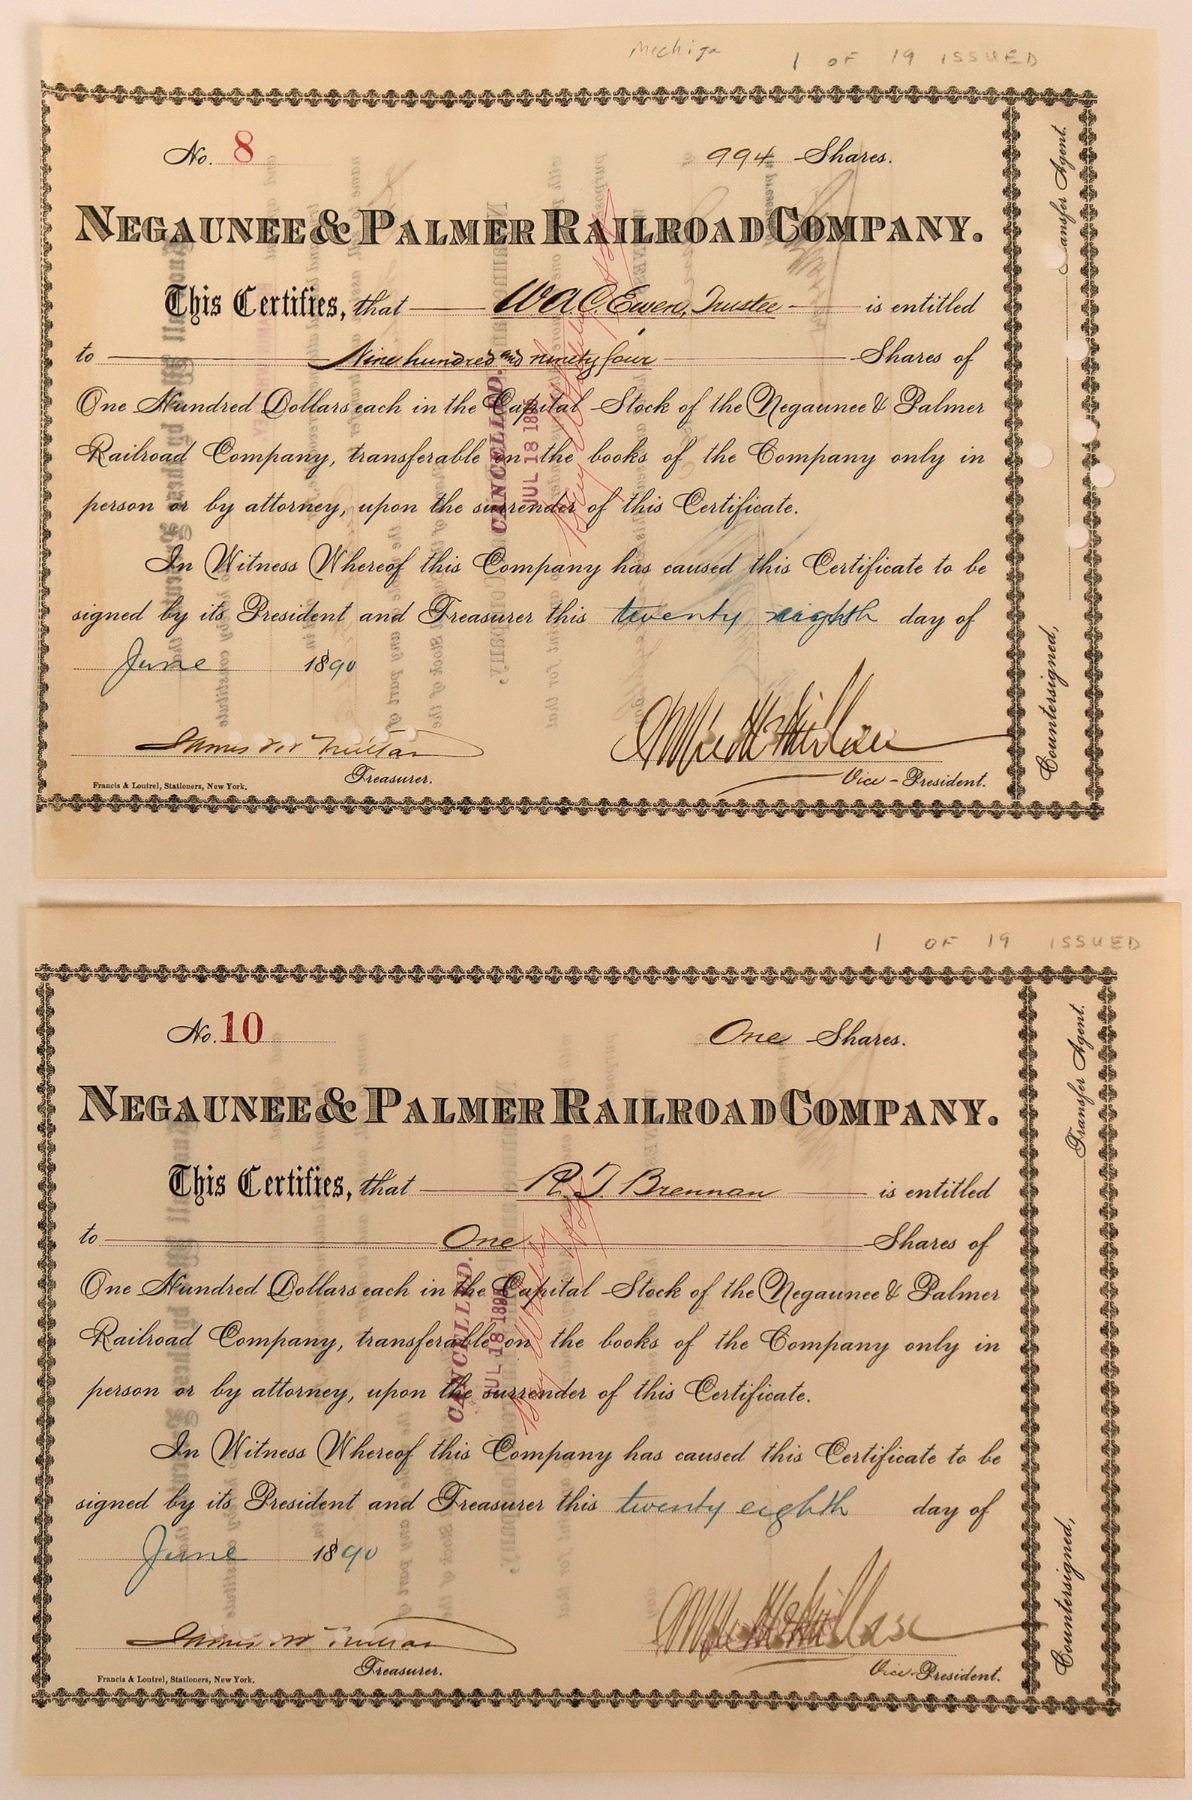 1 OF 19 ISSUED
No. 8
994 Shares.
NEGAUNEE & PALMER RAILROAD COMPANY.
This Certifies, that W A C. Ewen, Trustee is entitled
to Nine hundred and ninety four Shares of
One Hundred Dollars each in the Capital Stock of the Negaunee & Palmer
Railroad Company, transferable on the books of the Company only in
person or by attorney, upon the surrender of this Certificate.
In Witness Whereof this Company has caused this Certificate to be
signed by its President and Treasurer this twenty eighth day of
June 1890
Treasurer.
Vice-President.
Francis & Loutrel, Stationers, New York.
Countersigned,
Transfer Agent.
CANCELLED.
JUL 18
1 OF 19 ISSUED
No. 10
One Shares.
NEGAUNEE & PALMER RAILROAD COMPANY.
This Certifies, that R. T. Brennan is entitled
to One Shares of
One Hundred Dollars each in the Capital Stock of the Negaunee & Palmer
Railroad Company, transferable on the books of the Company only in
person or by attorney, upon the surrender of this Certificate.
In Witness Whereof this Company has caused this Certificate to be
signed by its President and Treasurer this twenty eighth day of
June 1890
Treasurer.
Vice-President.
Francis & Loutrel, Stationers, New York.
Countersigned,
Transfer Agent.
CANCELLED.
JUL 18